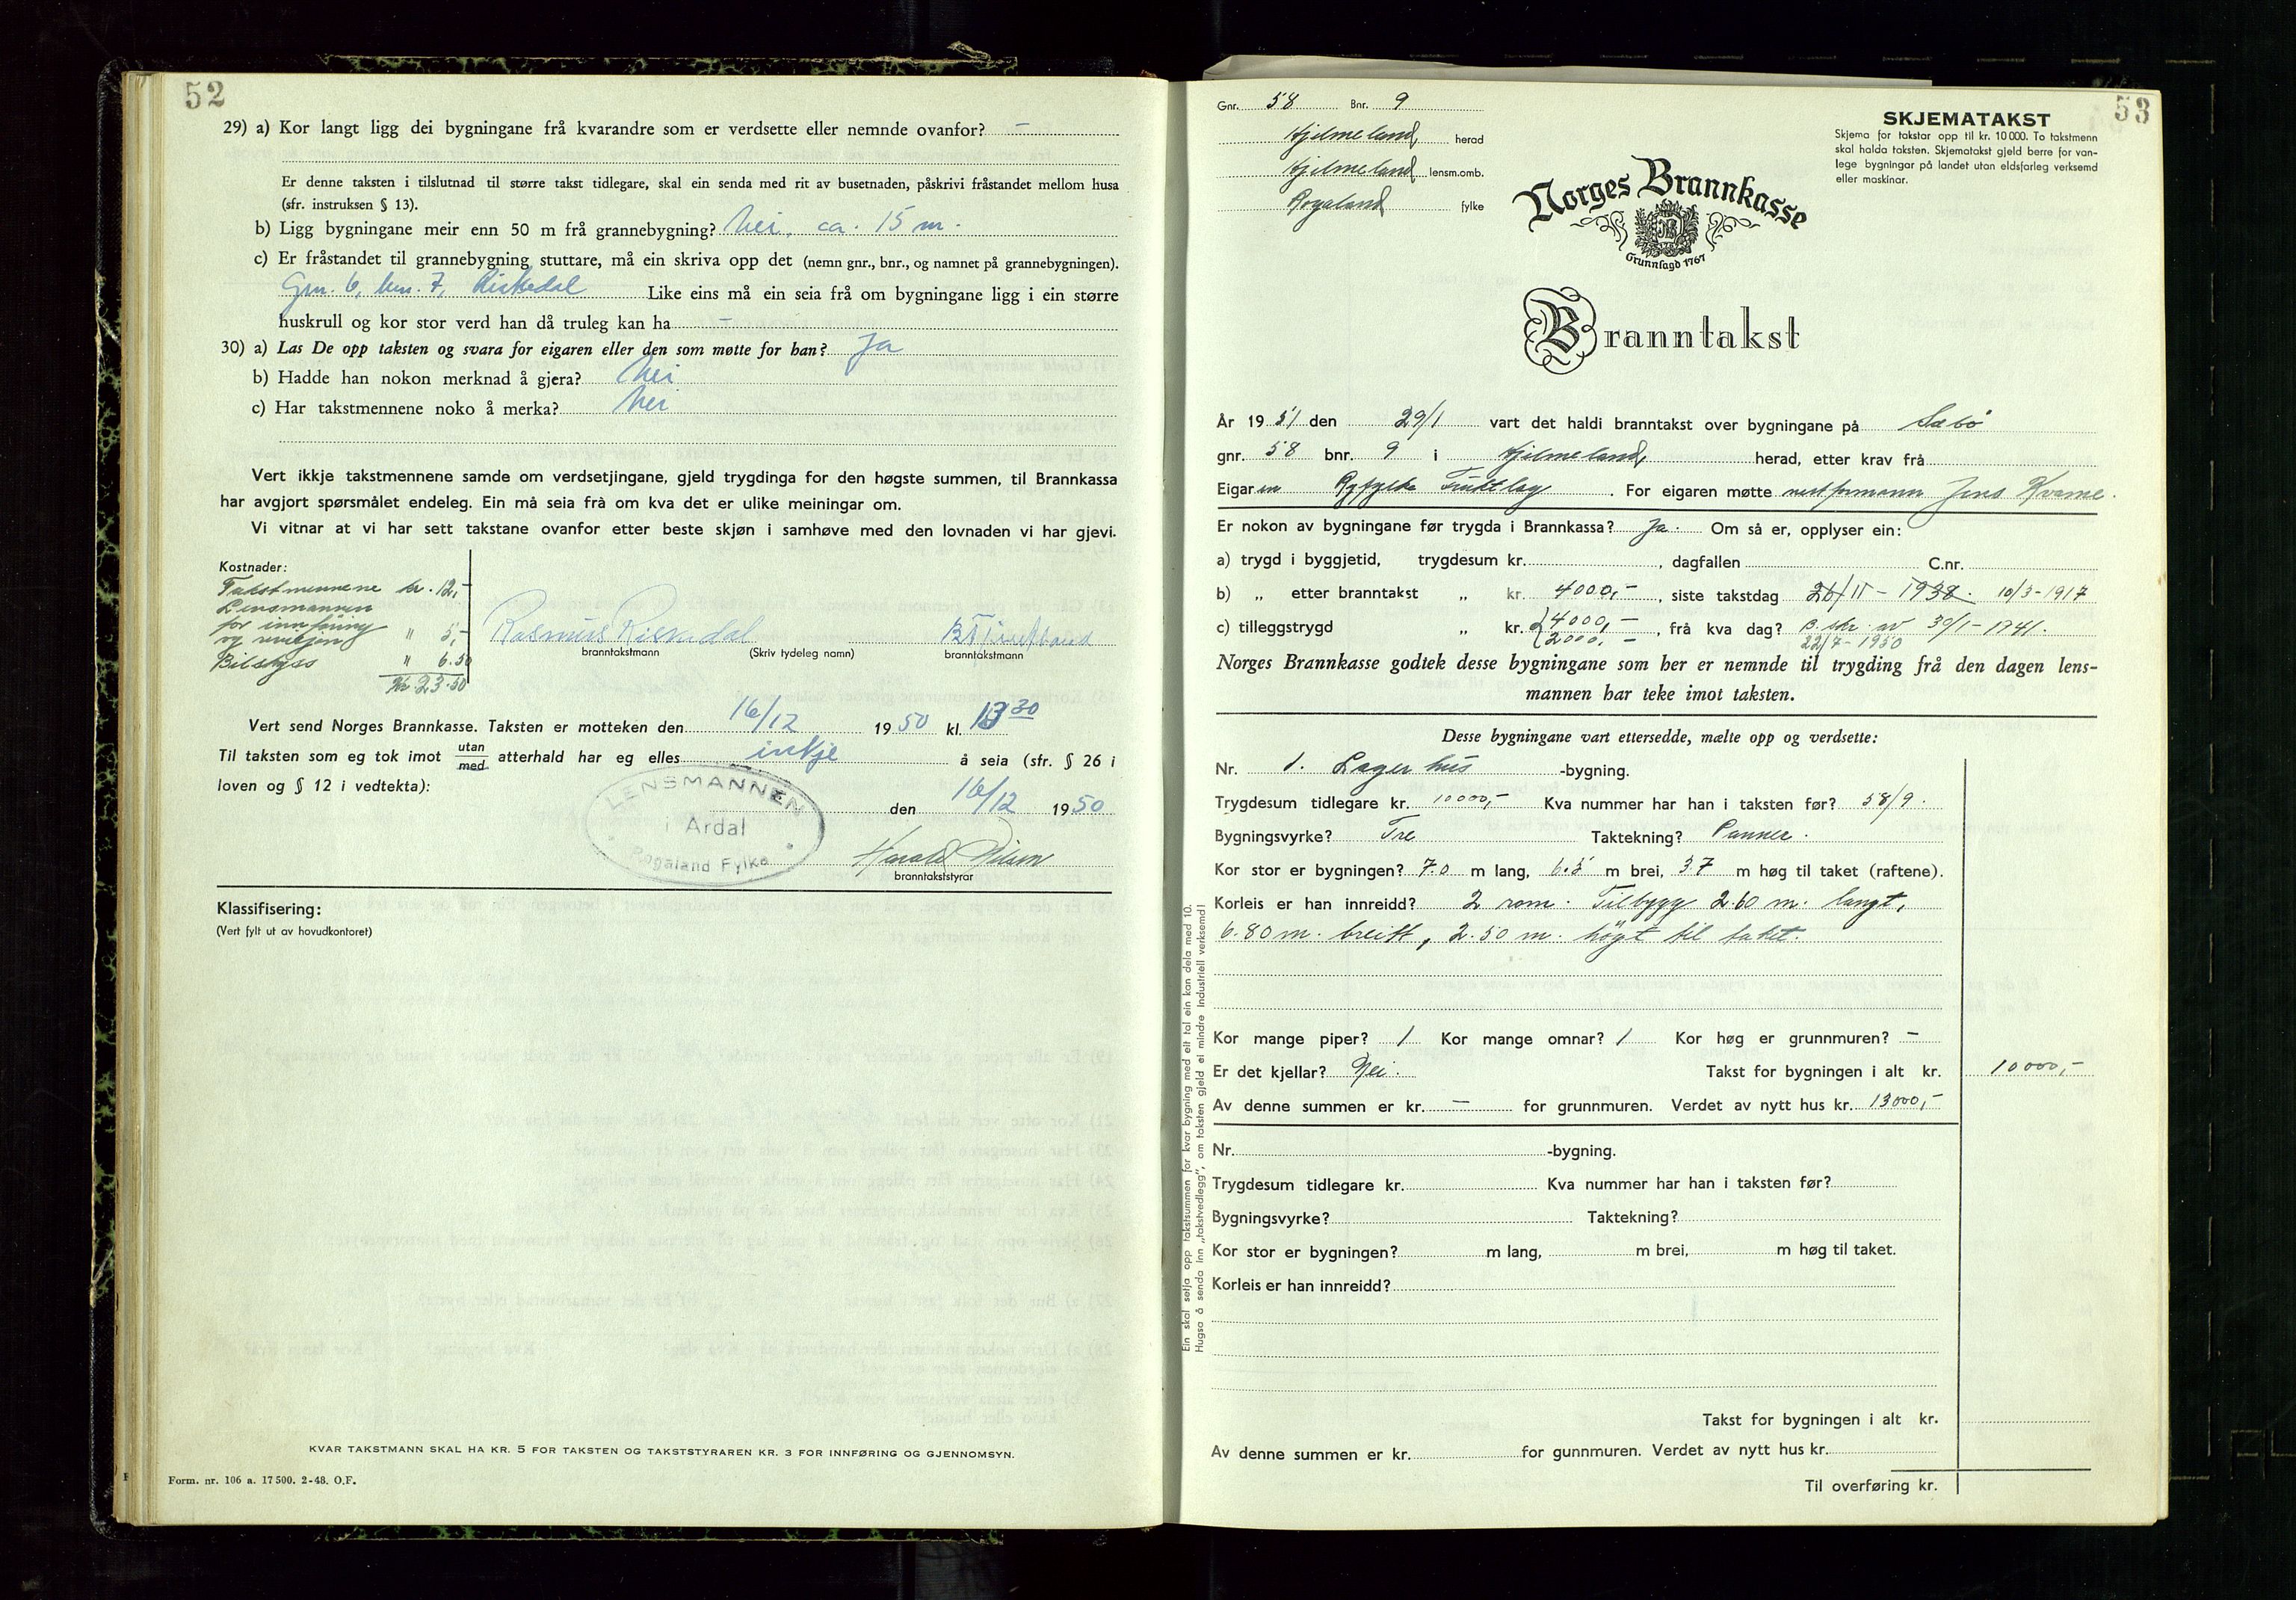 52
29) a) Kor langt ligg dei bygningane frå kvarandre som er verdsette eller nemnde ovanfor? –
Er denne taksten i tilslutnad til større takst tidlegare, skal ein senda med rit av busetnaden, påskrivi fråstandet mellom husa
(sfr. instruksen § 13).
b) Ligg bygningane meir enn 50 m frå grannebygning? Nei, ca. 15 m.
c) Er fråstandet til grannebygning stuttare, må ein skriva opp det (nemn gnr., bnr., og namnet på grannebygningen).
Gnr. 6, bnr. 7, Riskedal Like eins må ein seia frå om bygningane ligg i ein større
huskrull og kor stor verd han då truleg kan ha –
30) a) Las De opp taksten og svara for eigaren eller den som møtte for han? Ja
b) Hadde han nokon merknad å gjera? Nei
c) Har takstmennene noko å merka? Nei
Vert ikkje takstmennene samde om verdsetjingane, gjeld trygdinga for den høgste summen, til Brannkassa
har avgjort spørsmålet endeleg. Ein må seia frà om kva det er ulike meiningar om.
Vi vitnar at vi har sett takstane ovanfor etter beste skjøn i samhøve med den lovnaden vi har gjevi.
Kostnader:
Takstmennene kr. 12,-
Lensmannen
for innføring
og " 5,-
Bilskyss " 6.50
Kr. 23.50
Rasmus Riskedal
branntakstmann (Skriv tydeleg namn) branntakstmann
Vert send Norges Brannkasse. Taksten er motteken den 16/12 1950 kl. 13 30
Til taksten som eg tok imot utan/med atterhald har eg elles inkje å seia (sfr. § 26 i
loven og § 12 i vedtekta):
LENSMANNEN
i Årdal
Rogaland Fylke
den 16/12 1950
Harald
branntakststyrar
Klassifisering:
(Vert fylt ut av hovudkontoret)
KVAR TAKSTMANN SKAL HA KR. 5 FOR TAKSTEN OG TAKSTSTYRAREN KR. 3 FOR INNFØRING OG GJENNOMSYN.
Form. nr. 106 a. 17 500. 2-48. O.F.
53
Gnr. 58 Bnr. 9
Hjelmeland herad
Hjelmeland lensm.omb.
Rogaland fylke
SKJEMATAKST
Skjema for takstar opp til kr. 10 000. To takstmenn
skal halda taksten. Skjematakst gjeld berre for van-
lege bygningar på landet utan eldsfarleg verksemd
eller maskinar.
Norges Brannkasse
Grunnlagd 1767
Branntakst
År 1951 den 29/1 vart det haldi branntakst over bygningane på Sæbø
gnr. 58 bnr. 9 i Hjelmeland herad, etter krav frå
Eigaren Ryfylke Fruktlag. For eigaren møtte nestformann Jens Kvame.
Er nokon av bygningane før trygda i Brannkassa? Ja. Om så er, opplyser ein:
a) trygd i byggjetid, trygdesum kr. , dagfallen C.nr.
b) „ etter branntakst „ kr. 4000,- , siste takstdag 26/11 - 1938. 10/3-1917
c) tilleggstrygd „ kr. 4000,- , frå kva dag? B.skr. av 30/1-1941.
2000,- 22/7-1950
Norges Brannkasse godtek desse bygningane som her er nemnde til trygding frå den dagen lens-
mannen har teke imot taksten.
Desse bygningane vart ettersedde, mælte opp og verdsette:
Nr. 1. Lagerhus -bygning.
Trygdesum tidlegare kr. 10000,- Kva nummer har han i taksten før? 58/9.
Bygningsvyrke? Tre Taktekning? Panner.
Kor stor er bygningen? 7.0 m lang, 6.5 m brei, 3.7 m høg til taket (raftene).
Korleis er han innreidd? 2 rom. Tilbygg 2.60 m. langt,
6.80 m. breitt, 2.50 m. høgt til taket.
Kor mange piper? 1 Kor mange omnar? 1 Kor høg er grunnmuren? –
Er det kjellar? Nei. Takst for bygningen i alt kr. 10000,-
Av denne summen er kr. – for grunnmuren. Verdet av nytt hus kr. 13000,-
Nr. -bygning.
Trygdesum tidlegare kr. Kva nummer har han i taksten før?
Bygningsvyrke? Taktekning?
Kor stor er bygningen? m lang, m brei, m høg til taket.
Korleis er han innreidd?
Takst for bygningen i alt kr.
Av denne summen er kr. for gunnmuren. Verdet av nytt hus kr.
Til overføring kr.
Ein skal setja opp takstsummen for kvar bygning med eit tal ein kan dela med 10.
Hugsa å senda inn „takstvedlegg", om taksten gjeld ei mindre industriell verksemd!